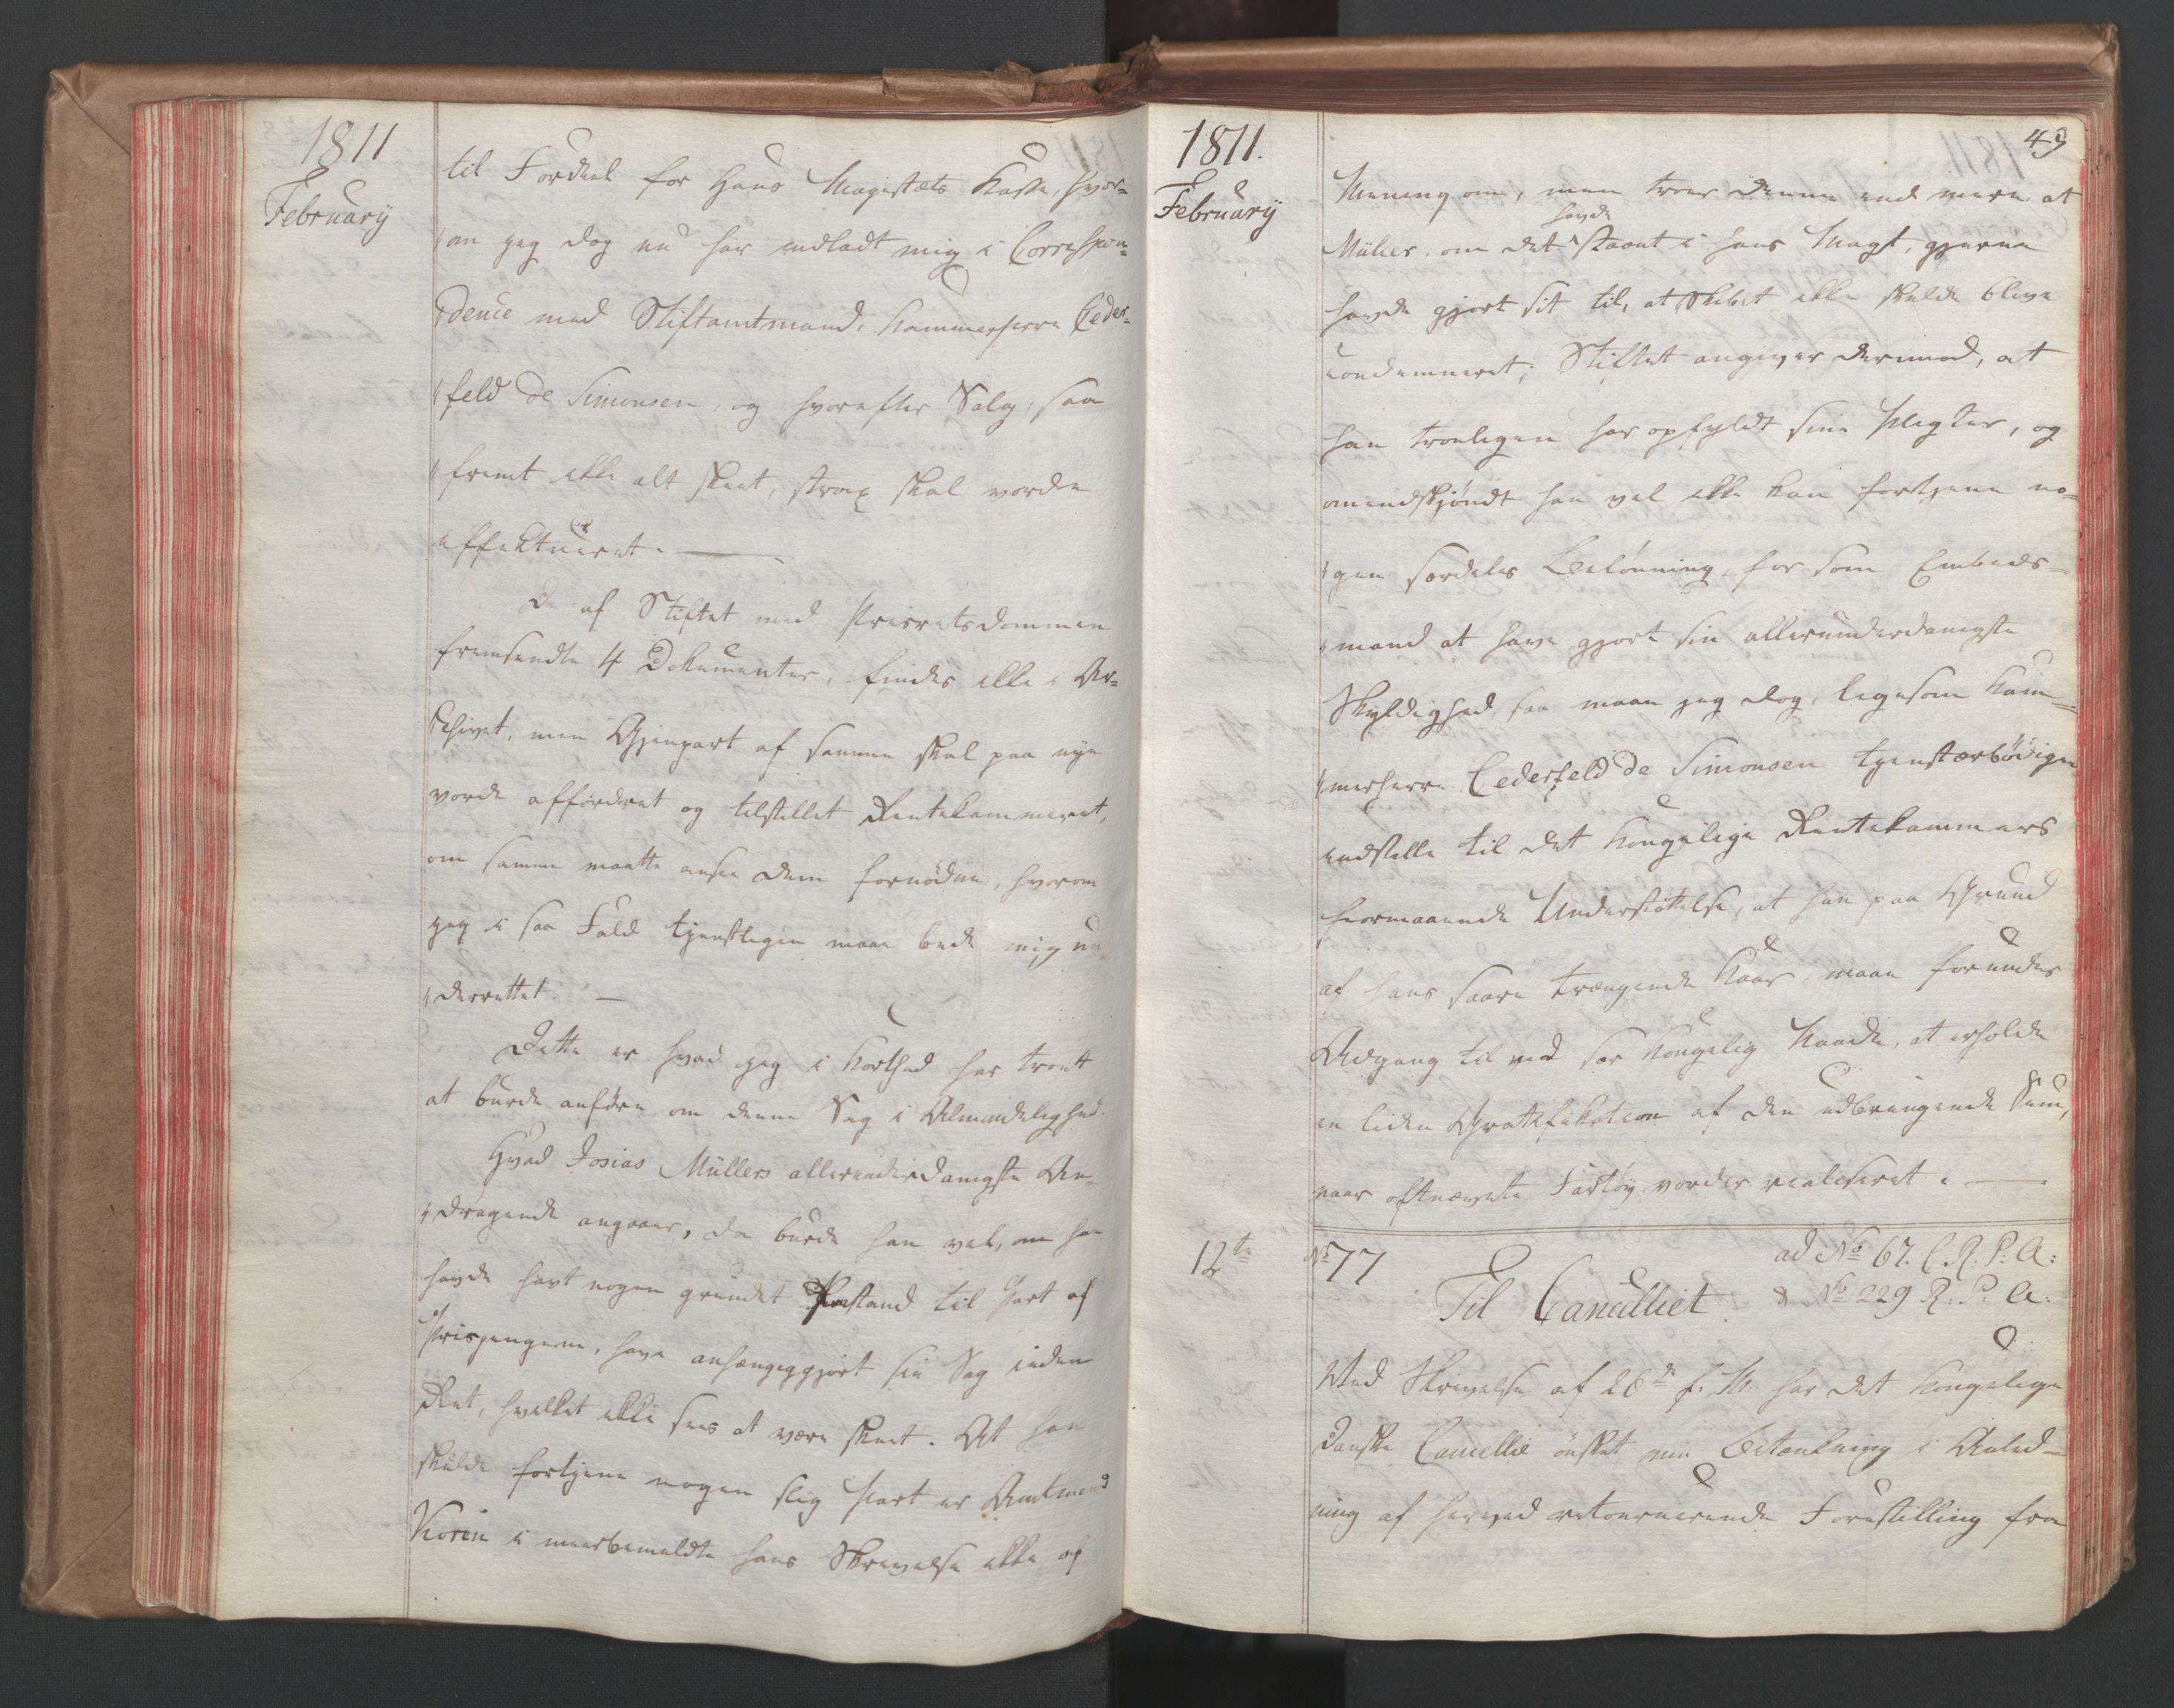 1811
February
til Fordeel for Hans Majestæts Kasse, hvor=
"om jeg dog nu har indladt mig i Correspon=
"dence med Stiftamtmand, Kammerherre Ceder=
"feld de Simonsen, og hvorefter Salg, saa
"fremt ikke alt skeet, strax skal vorde
effektueret. —
De af Stiftet med Prisretsdommen
fremsendte 4 Dokumenter, findes ikke i Ar=
"chivet, men Gjenpart af samme skal paa nye
vorde affordret og tilstillet Rentekammeret,
om samme maatte ansee dem fornödne, hvorom
jeg i saa Fald tjenstligen maae bede mig un=
"derrettet. —
Dette er hvad jeg i Korthed har troet
at burde anföre om denne Sag i Almindelighed.
Hvad Josias Müllers allerunderdanigste An=
"dragende angaaer, da burde han vel, om han
havde havt nogen grundet Paastand til Part af
Prispengene, have anhængiggjort sin Sag inden
Ret, hvilket ikke sees at være skeet. At han
skulde fortjene nogen slig Part er Amtmand
Koren i meerbemeldte hans Skrivelse ikke af
1811.
February
49
Mening om, men troer denne end mere at
Müller, om det havde staaet i hans Magt, gjerne
havde gjort sit til, at Skibet ikke skulde blive
condemneret; Stiftet angiver derimod, at
han troeligen har opfyldt sine Pligter, og
omendskjöndt han vel ikke kan fortjene no=
"gen særdeles Belönning, for som Embeds=
"mand at have gjort sin allerunderdanigste
Skyldighed saa maae jeg dog, ligesom Kam=
"merherre Cederfeld de Simonsen tjenstærbödigen
indstille til det Kongelige Rentekammers
formaaende Understöttelse, at han paa Grund
af hans saare trængende Kaar, maae forundes
Adgang til ved sær Kongelig Naade, at erholde
en liden Gratifikation af den udbringende Sum,
naar oftnævnte Fartöy vorder realiseret. —
12te
No 77
ad No 67. C. R. P: A:
& No 229 R. P. A:
Til Cancelliet.
Ved Skrivelse af 26de f. M. har det Kongelige
danske Cancellie önsket min Betænkning i Anled=
ning af hervedretournerende Forestilling fra